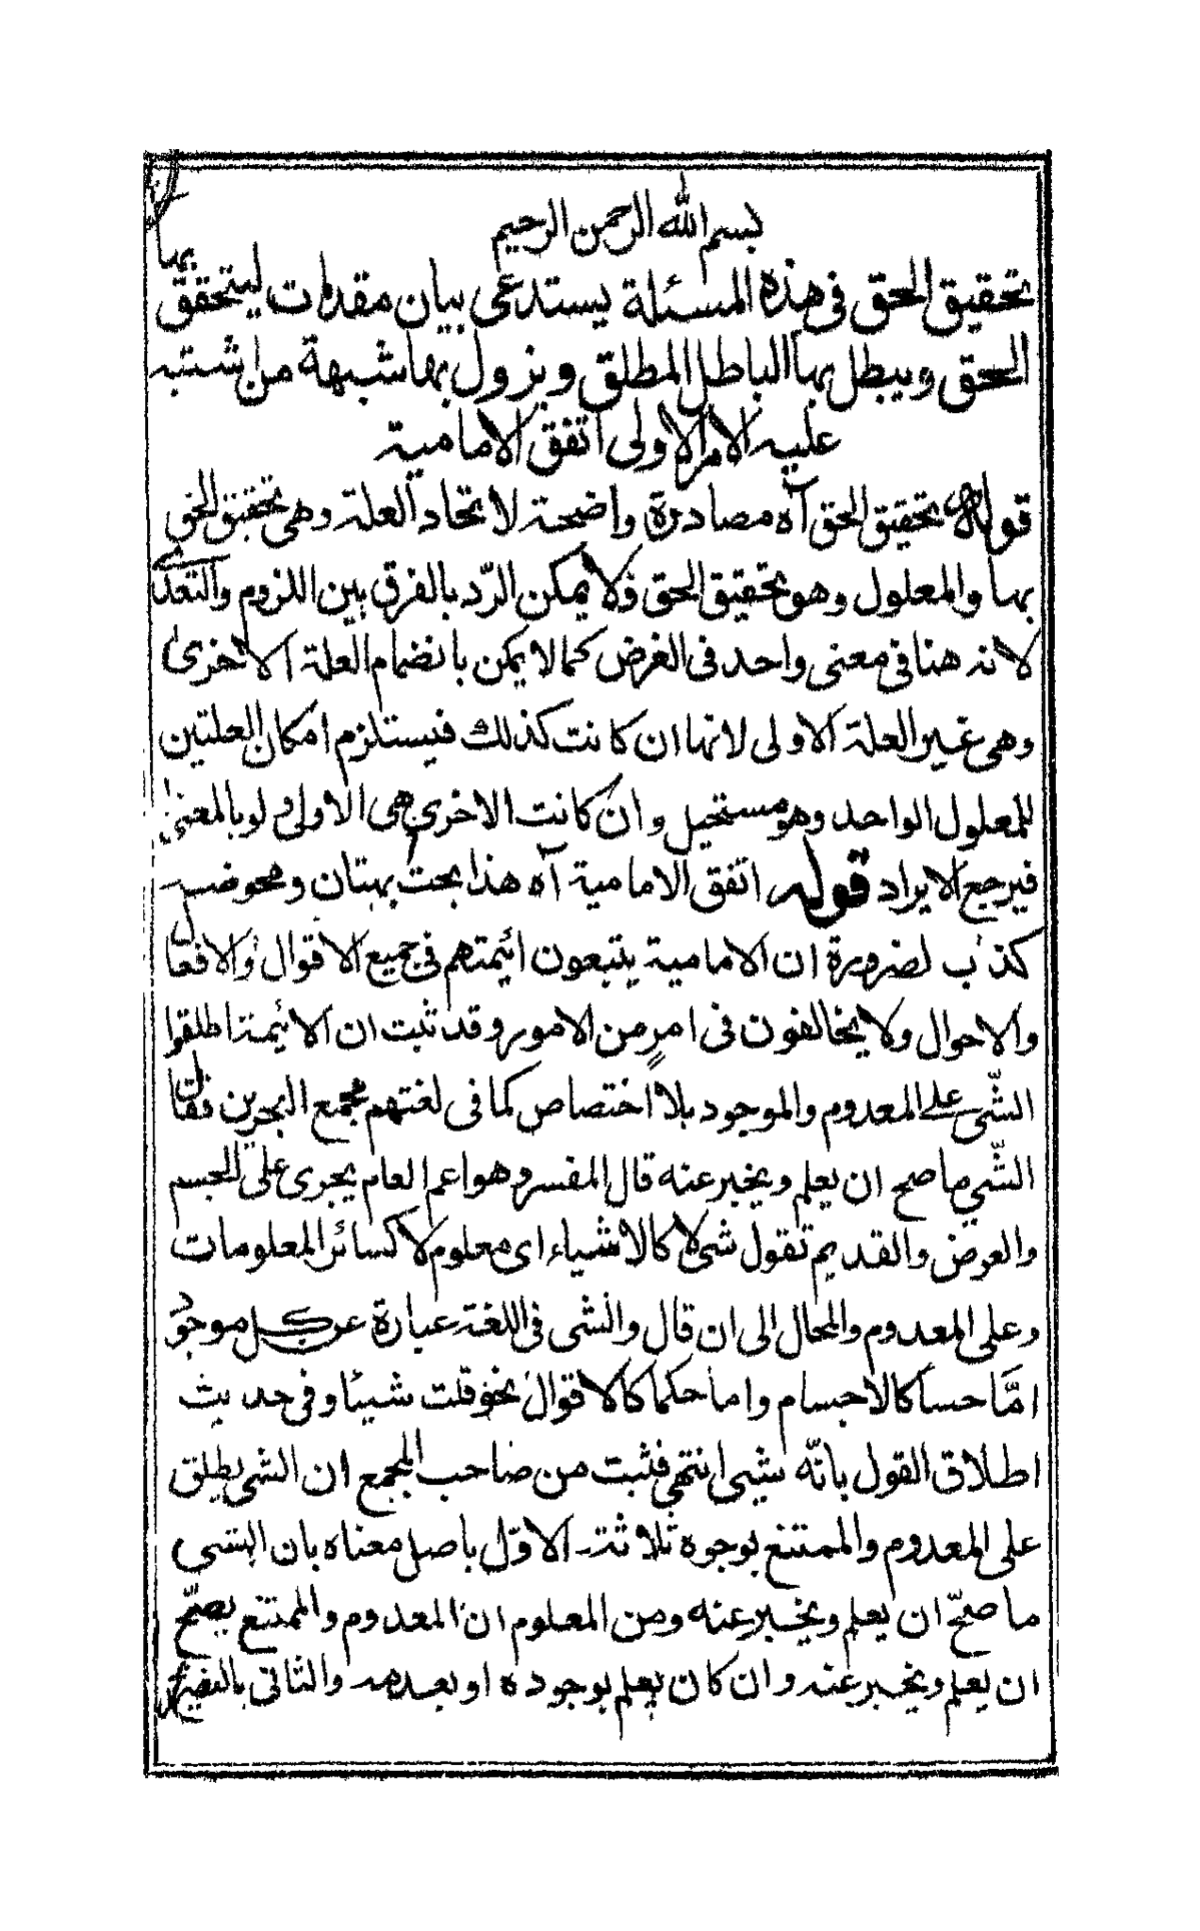 بسم الله الرحمن الرحيم
تحقيق الحق فى هذه المسئلة يستدعى بيان مقدمات ليتحقق بها
الحق ويبطل بها الباطل المطلق ويزول بها شبهة من اشتبه
عليه الامر الاولى اتفق الامامية
قوله تحقيق الحق آه مصادرة واضحة لاتحاد العلة وهى تحقيق الحق
بها والمعلول وهو تحقيق الحق ولا يمكن الرّد بالفرق بين اللزوم والتعدى
لانه هنا فى معنى واحد فى الغرض كما لا يمكن بانضمام العلة الاخرى
وهى غير العلة الاولى لانها ان كانت كذلك فيستلزم امكان العلتين
للمعلول الواحد وهو مستحيل وان كانت الاخرى هى الاولى ولو بالمعنى
فيرجع الايراد قوله اتفق الامامية آه هذا بحت بهتان ومحوضة
كذب لضرورة ان الامامية يتبعون ائيمتهم فى جميع الاقوال والافعال
والاحوال ولا يخالفون فى امرٍ من الامور وقد ثبت ان الائيمة اطلقوا
الشّى على المعدوم والموجود بلا اختصاص كما فى لغتهم مجمع البحرين فقال
الشّى ما صح ان يعلم ويخبر عنه قال المفسر وهو اعم العام يجرى على الجسم
والعرض والقديم تقول شى لا كالاشياء اى معلوم لا كسائر المعلومات
وعلى المعدوم والمحال الى ان قال والشى فى اللغة عبارة عن كل موجود
امَّا حسا كالاجسام واما حكما كالاقوال نحو قلت شيئا وفى حديث
اطلاق القول بانّه شى انتهى فثبت من صاحب المجمع ان الشى يطلق
على المعدوم والممتنع بوجوه ثلاثة الاوّل باصل معناه بان الشى
ما صحّ ان يعلم ويخبر عنه ومن المعلوم ان المعدوم والممتنع يصحّ
ان يعلم ويخبر عنه وان كان يعلم بوجوده او بعدمه والثانى